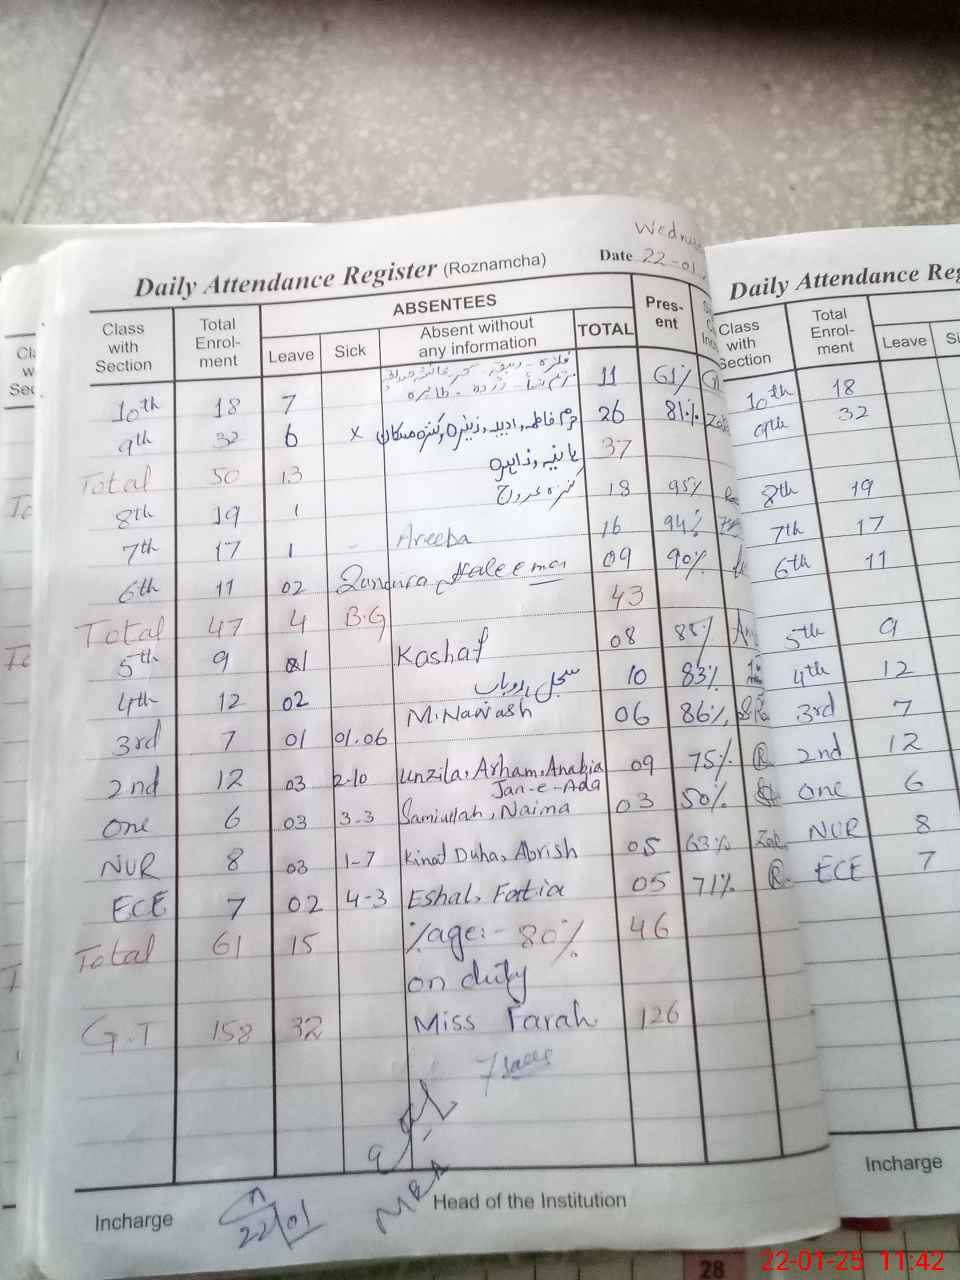 Wednes
Daily Attendance Register (Roznamcha) Date 22-01
Class with Section Total Enrol-ment ABSENTEES Leave Sick Absent without any information TOTAL Pres-ent
10th 18 7 11 61%
9th 32 6 x 26 81%
Total 50 13 37
8th 19 1 18 95%
7th 17 1 - Areeba 16 94%
6th 11 02 Haleema 09 90%
Total 47 4 B.G 43
5th 9 01 Kashaf 08 88%
4th 12 02 10 83%
3rd 7 01 01.06 M.Nawash 06 86%
2nd 12 03 2-10 Unzila, Arham, Anabia 09 75%
Jan-e-Ada
One 6 03 3-3 Samiullah, Naima 03 50%
NUR 8 03 1-7 Kinat Duha, Abrish 05 63%
ECE 7 02 4-3 Eshal, 05 71%
Total 61 15 %age:- 80% 46
on duty
G.T 158 32 Miss Farah 126
Incharge 22/01 Head of the Institution
Daily Attendance Reg
Class with Section Total Enrol-ment Leave Si
10th 18
9th 32
8th 19
7th 17
6th 11
5th 9
4th 12
3rd 7
2nd 12
One 6
NUR 8
ECE 7
Incharge
28
22-01-25 11:42